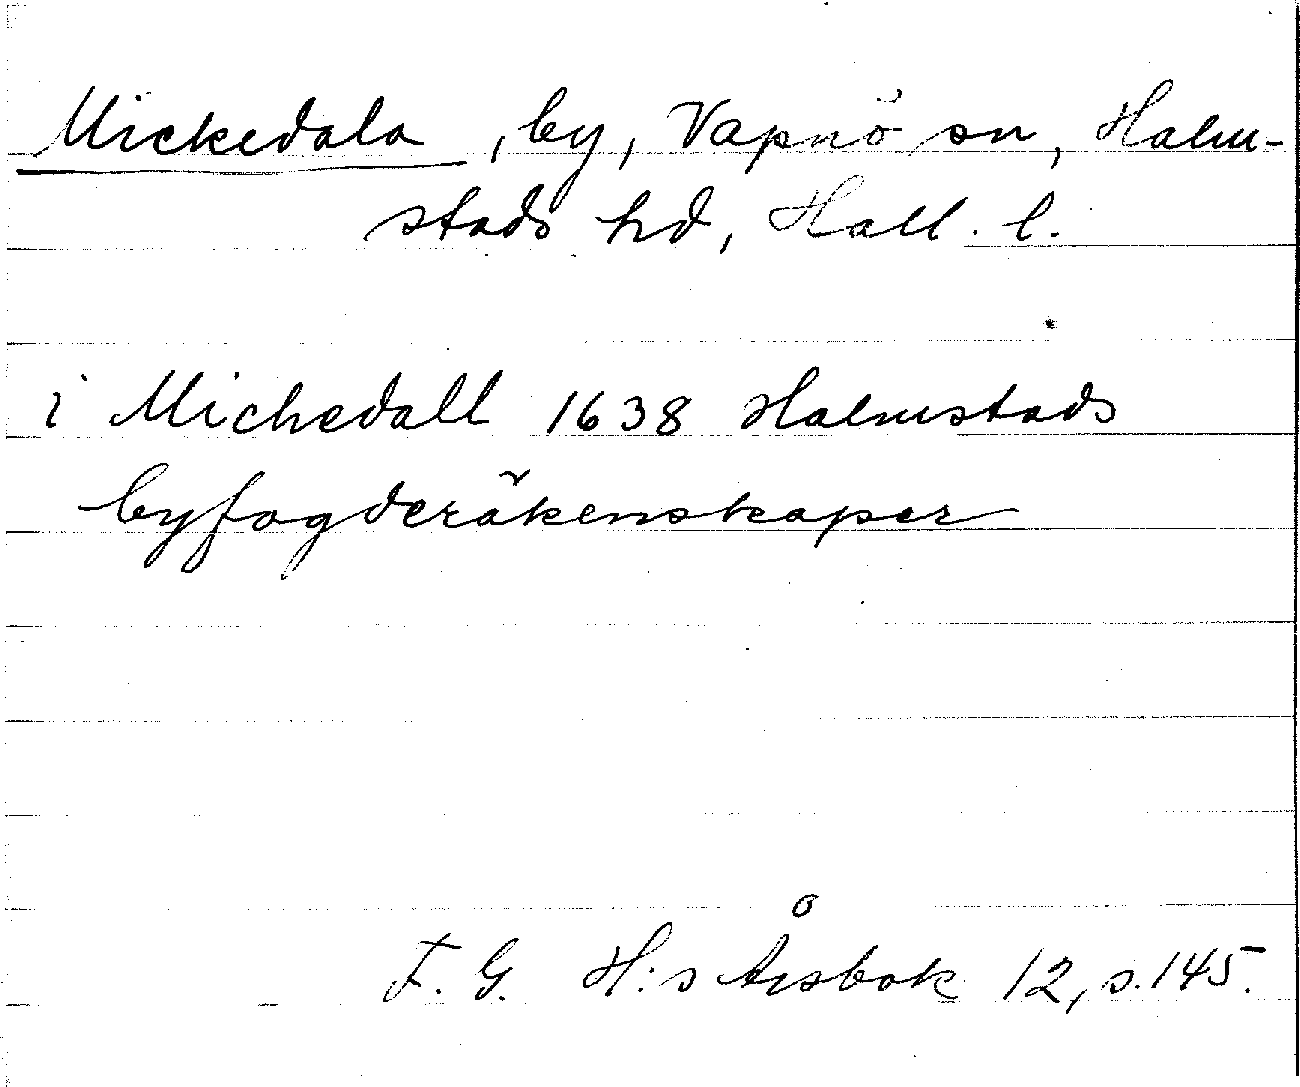 Mickedala, by, Vapnö sn, Halm-
stads hd, Hall. l.
i Michedall 1638 Halmstads
byfogderäkenskaper
F. G. H:s Årsbok 12, s. 145.